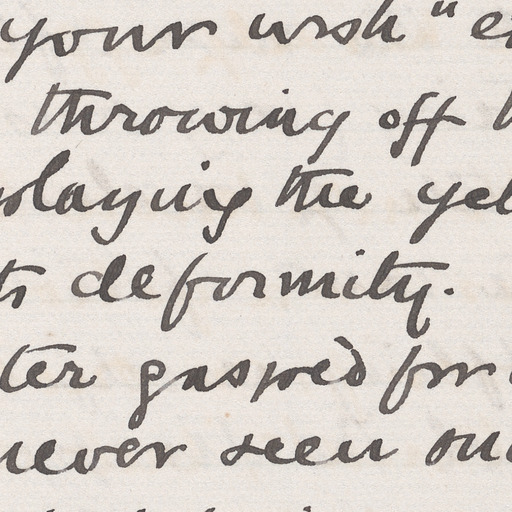 your wish" e
throwing off
playing the yel
ts deformity.
ter gasped for
never seen on